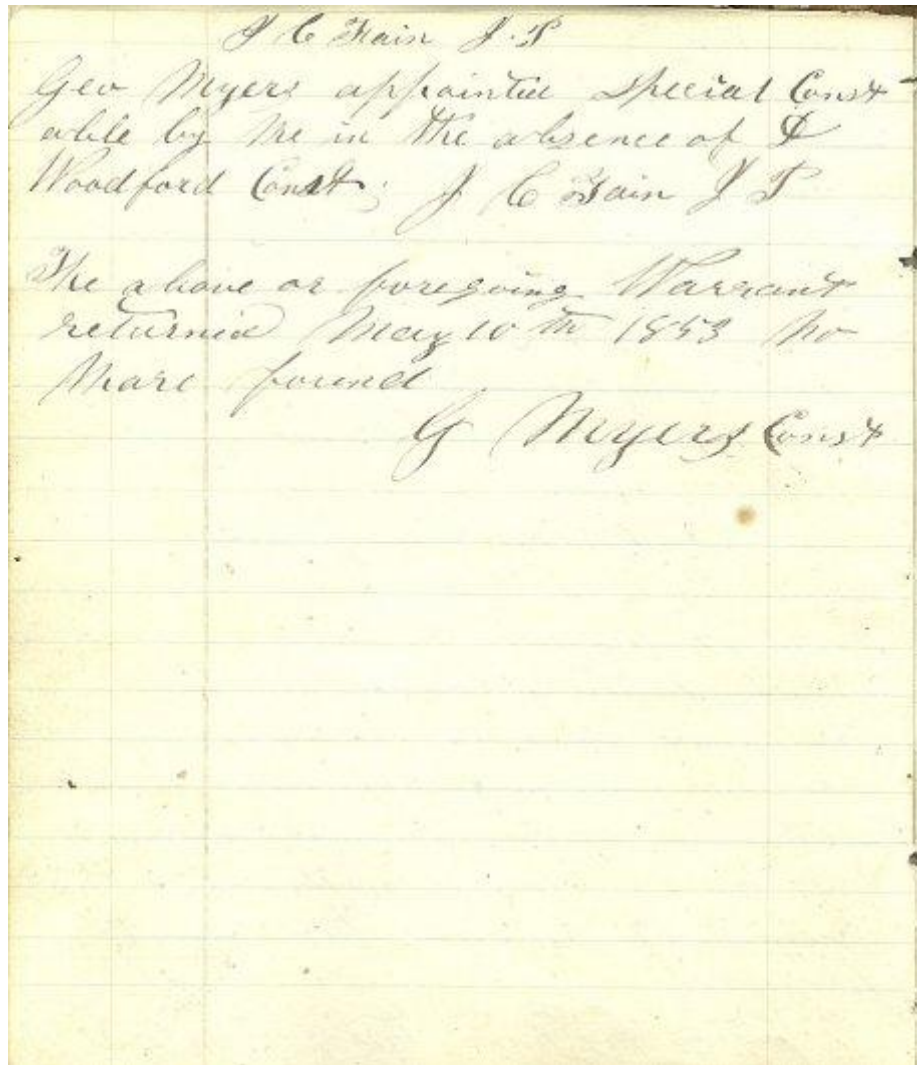 J C Fain J. P
Geo Myers appointed special Const
able by me in the absence of D
Woodford Const; J C Fain J P
The above or foregoing Warrant
returned May 10th 1853 no
mare found
G Myers Const